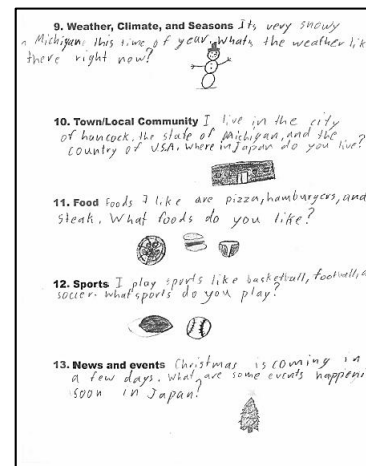 9. Weather, Climate, and Seasons Its very snowy
n Michigan this time of year. Whats the weather lik
there right now?
10. Town/Local Community I live in the city
of hancock, the state of Michigan, and the
country of USA. Where in Japan do you live?
11. Food Foods I like are pizza, hamburgers, and
steak. What foods do you like?
12. Sports I play sports like basketball, football, a
soccer. What sports do you play?
13. News and events Christmas is coming in
a few days. What are some events happeni
soon in Japan?